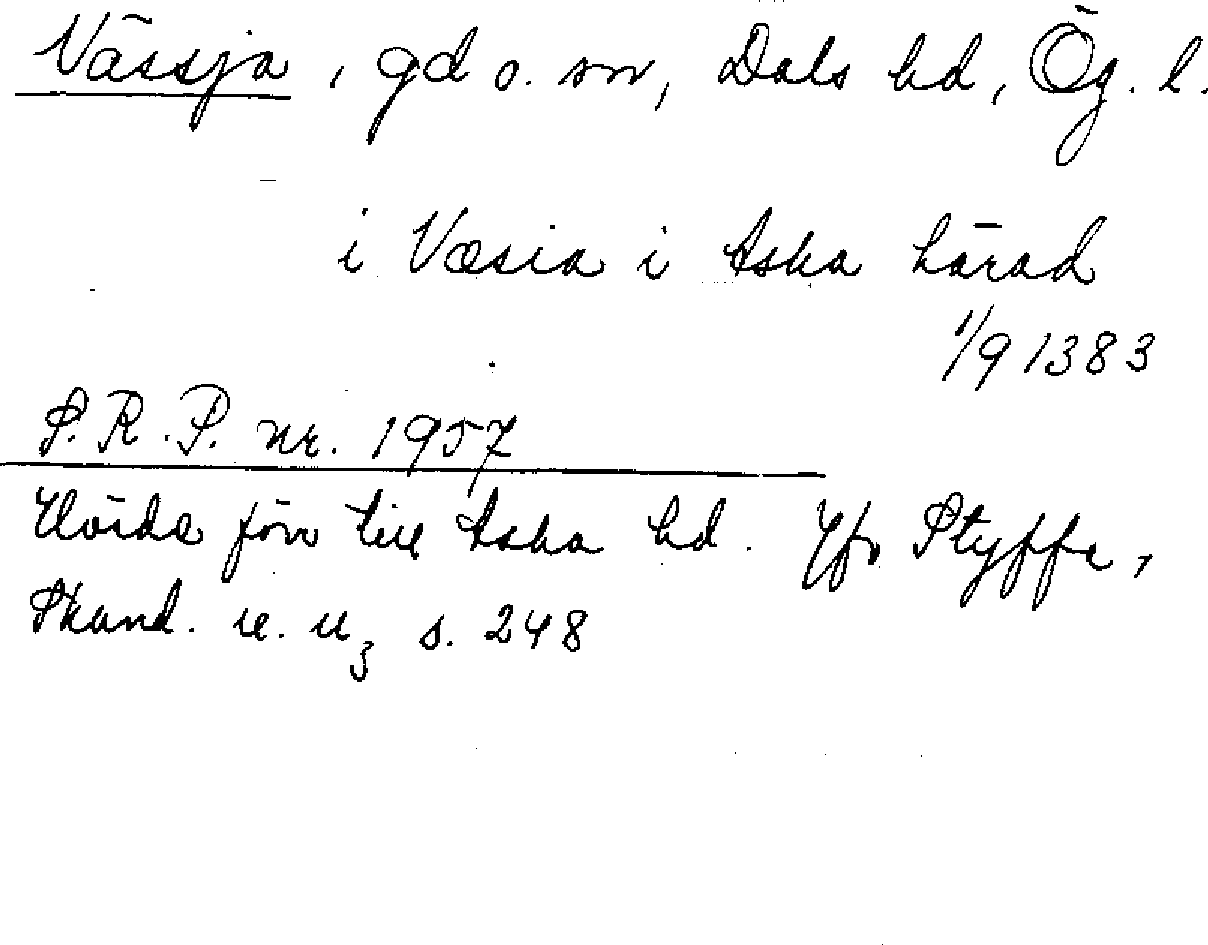 Vässja, gd o. sn, Dals hd, Ög. l.
i Væsia i Aska härad
1/9 1383
S.R.P. nr. 1957
Hörde förr till Aska hd. Jfr Styffe,
Skand. u. u₃ s. 248